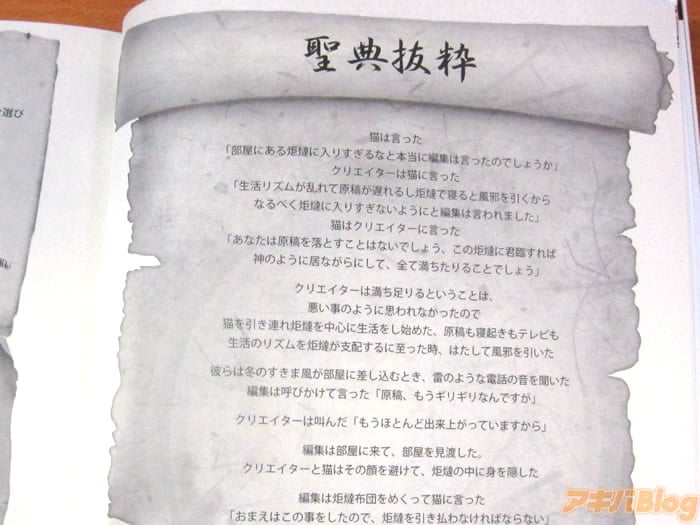 聖典抜粋
猫は言った
「部屋にある炬燵に入りすぎるなと本当に編集は言ったのでしょうか」
クリエイターは猫に言った
「生活リズムが乱れて原稿が遅れるし炬燵で寝ると風邪を引くから
なるべく炬燵に入りすぎないようにと編集は言われました」
猫はクリエイターに言った
「あなたは原稿を落とすことはないでしょう、この炬燵に君臨すれば
神のように居ながらにして、全て満ちたりることでしょう」
クリエイターは満ち足りるということは、
悪い事のように思われなかったので
猫を引き連れ炬燵を中心に生活をし始めた、原稿も寝起きもテレビも
生活のリズムを炬燵が支配するに至った時、はたして風邪を引いた
彼らは冬のすきま風が部屋に差し込むとき、雷のような電話の音を聞いた
編集は呼びかけて言った「原稿、もうギリギリなんですが」
クリエイターは叫んだ「もうほとんど出来上がっていますから」
編集は部屋に来て、部屋を見渡した。
クリエイターと猫はその顔を避けて、炬燵の中に身を隠した
編集は炬燵布団をめくって猫に言った
「おまえはこの事をしたので、炬燵を引き払わなければならない」
選び
アキバBlog